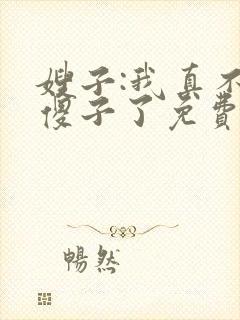 嫂子:我真不
傻子了免费
暢然